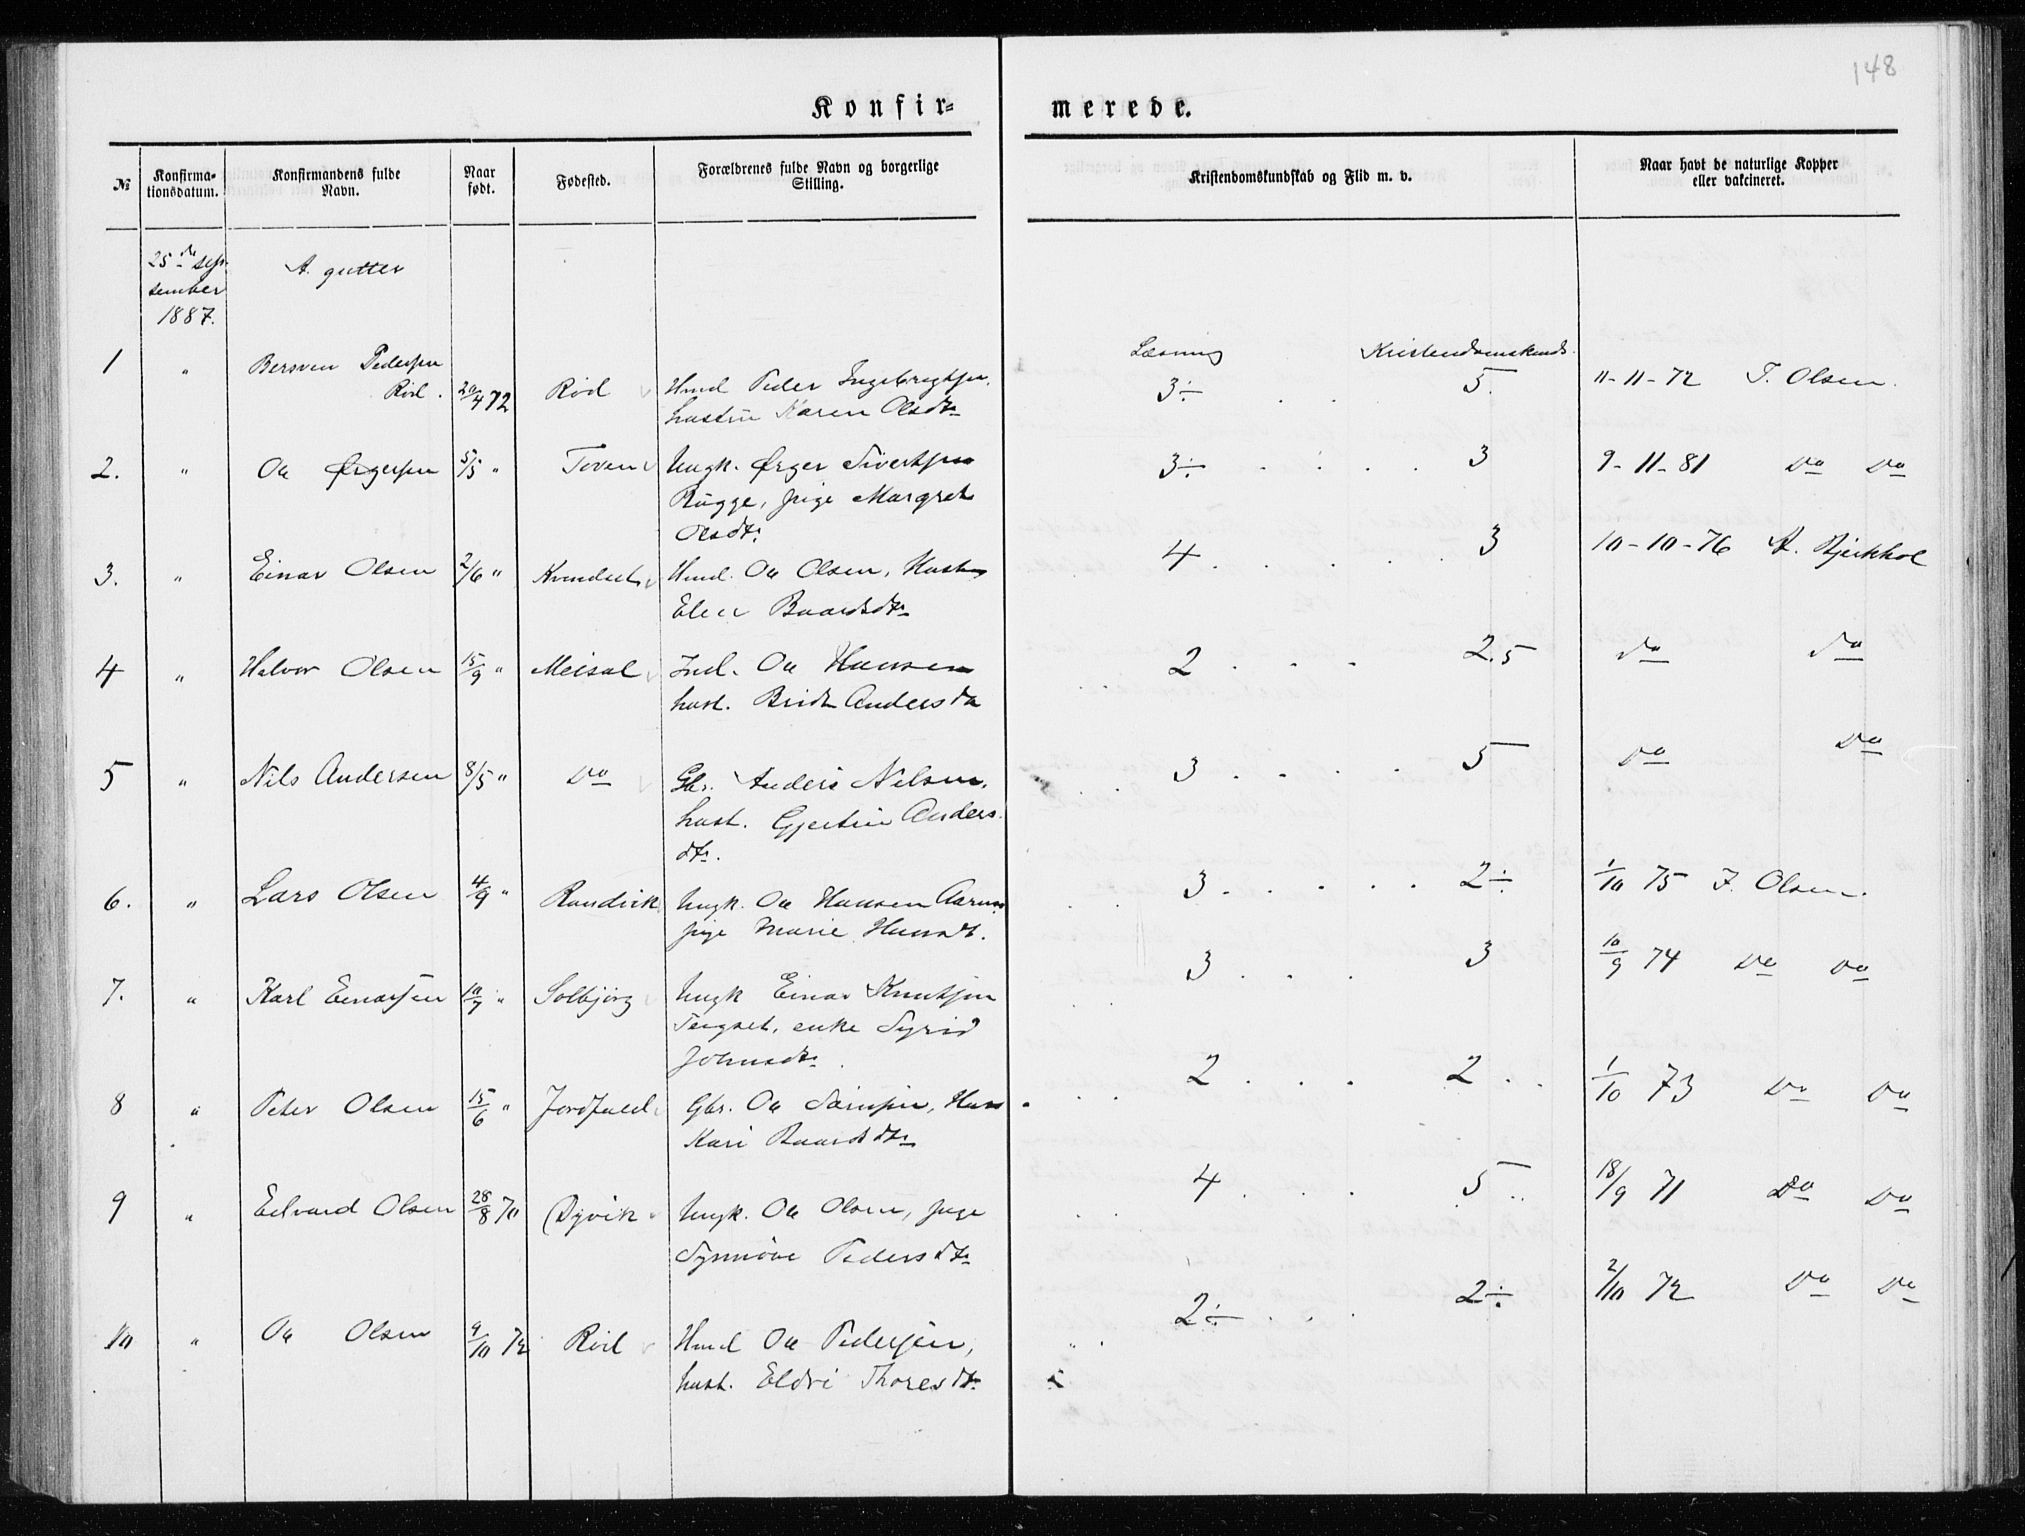 148
Konfir-
merede.
№
Konfirma-
tionsdatum.
Konfirmandens fulde
Navn.
Naar
født.
Fødested.
Forældrenes fulde Navn og borgerlige
Stilling.
Kristendomskundskab og Flid m. v.
Naar havt de naturlige Kopper
eller vakcineret.
25de sep-
tember
1887.
A. gutter
Læsning Kristendomskunds.
1 " Bersven Pedersen
Röd. 20/4 72 Röd Hmd Peder Ingebregtsen, 3÷ . . . 5. 11-11-72 T. Olsen.
hustru Karen Olsdtr
2. " Ole Ørgersen 5/5 " Toven Ungk. Ørger Sivertsen 3÷ . . . . 3 9-11-81 Do Do
Rugge, pige Margret
Olsdtr
3. " Einar Olsen 2/6 " Hmd. Ole Olsen, Hustr 4 . . . . . 3 10-10-76
Elen Baardsdtr
4 " Halvor Olsen 15/9 " Meisal Ind. Ole Hansen 2 . . . 2.5 do do
hust. Andersdtr
5 " Nils Andersen 8/5 " Do Gbr. Anders Nilsen, 3 . . . . 5 Do Do
hust. Gjertine Anders
dtr.
6. " Lars Olsen 4/9 " Ranvik Ungk. Ole Hansen 3 . . . . . 2÷ 1/10 75 T. Olsen.
pige Marie Hansdt.
7. " Karl Einarsen 10/7 " Solbjörg Ungk Einar Knutsen 3 . . . 3 10/9 74 Do Do
enke Syrid
Johnsdtr
8 " Peter Olsen 15/6 " Jordfald Gbr. Ole 2 . . . 2 . . 1/10 73 Do Do
Kari Baardsdtr
9 " Edvard Olsen 28/8 70 Dyvik Ungk. Ole Olsen, pige 4 . . . 5 .. 18/9 71 Do Do
Synnöve Pedersdtr
10 " Ole Olsen 9/10 72 Röd Hmd Ole Pedersen, 2÷ . . . 2÷ 2/10 72 Do Do
hust. Eldri Thoresdtr